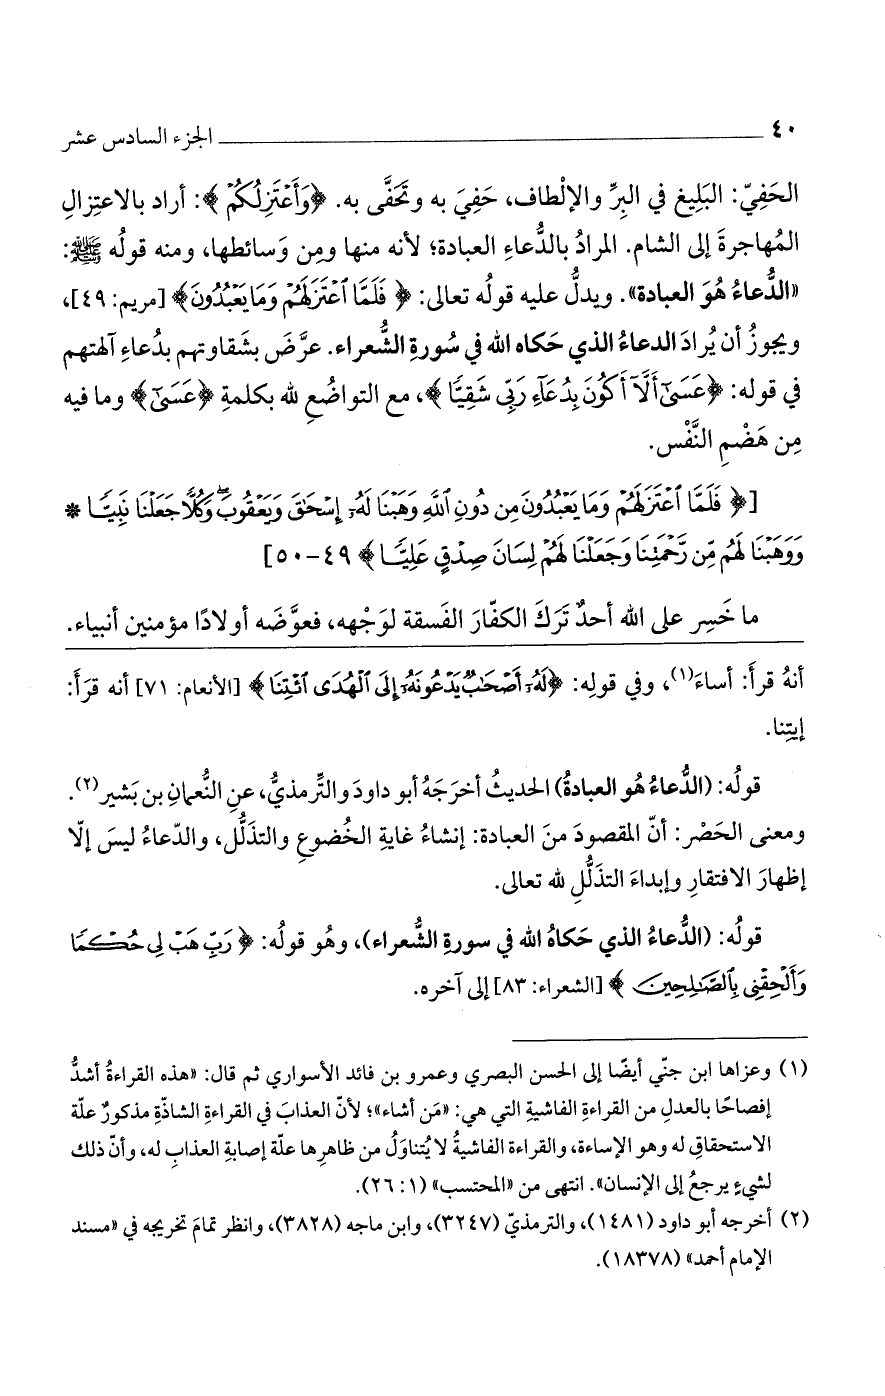 ٤٠ الجزء السادس عشر
الحَفِيّ: البَلِيغ في البِرِّ والإلْطاف، حَفِيَ به وتَحَفَّى به. ﴿وَأَعْتَزِلُكُمْ﴾: أراد بالاعتِزالِ
المُهاجرةَ إلى الشام. المرادُ بالدُّعاءِ العبادة؛ لأنه منها ومِن وَسائطها، ومنه قولُه ﷺ:
«الدُّعاءُ هُوَ العبادة». ويدلُّ عليه قولُه تعالى: ﴿فَلَمَّا ٱعْتَزَلَهُمْ وَمَا يَعْبُدُونَ﴾ [مريم: ٤٩]،
ويجوزُ أن يُرادَ الدعاءُ الذي حَكاه الله في سُورةِ الشُّعراء. عرَّضَ بشَقاوتهم بدُعاءِ آلهتهم
في قوله: ﴿عَسَىٰٓ أَلَّآ أَكُونَ بِدُعَآءِ رَبِّى شَقِيًّا﴾، مع التواضُعِ لله بكلمةِ ﴿عَسَىٰٓ﴾ وما فيه
مِن هَضْمِ النَّفْس.
[﴿فَلَمَّا ٱعْتَزَلَهُمْ وَمَا يَعْبُدُونَ مِن دُونِ ٱللَّهِ وَهَبْنَا لَهُۥٓ إِسْحَٰقَ وَيَعْقُوبَ ۖ وَكُلًّا جَعَلْنَا نَبِيًّا *
وَوَهَبْنَا لَهُم مِّن رَّحْمَتِنَا وَجَعَلْنَا لَهُمْ لِسَانَ صِدْقٍ عَلِيًّا﴾ ٤٩-٥٠]
ما خَسِر على الله أحدٌ تَرَكَ الكفّارَ الفَسقة لوَجْهه، فعوَّضَه أولادًا مؤمنين أنبياء.
أنهُ قرأَ: أساءَ(١)، وفي قولِه: ﴿لَهُۥٓ أَصْحَٰبٌ يَدْعُونَهُۥٓ إِلَى ٱلْهُدَى ٱئْتِنَا﴾ [الأنعام: ٧١] أنه قرَأَ:
إيتِنا.
قولُه: (الدُّعاءُ هُو العبادةُ) الحديثُ أخرَجَهُ أبو داودَ والتِّرمذيُّ، عنِ النُّعمانِ بن بَشير(٢).
ومعنى الحَصْر: أنّ المقصودَ منَ العبادة: إنشاءُ غايةِ الخُضوعِ والتذَلُّل، والدّعاءُ ليسَ إلّا
إظهارَ الافتقارِ وإبداءَ التذَلُّلِ لله تعالى.
قولُه: (الدُّعاءُ الذي حَكاهُ الله في سورةِ الشُّعراء)، وهُو قولُه: ﴿رَبِّ هَبْ لِى حُكْمًا
وَأَلْحِقْنِى بِٱلصَّٰلِحِينَ﴾ [الشعراء: ٨٣] إلى آخره.
(١) وعزاها ابن جنّي أيضًا إلى الحسن البصري وعمرو بن فائد الأسواري ثم قال: «هذه القراءةُ أشدُّ
إفصاحًا بالعدلِ من القراءةِ الفاشيةِ التي هي: «مَن أشاء»؛ لأنّ العذابَ في القراءةِ الشاذّةِ مذكورٌ علّة
الاستحقاقِ له وهو الإساءة، والقراءة الفاشيةُ لا يُتناوَلُ من ظاهرِها علّة إصابةِ العذابِ له، وأنّ ذلك
لشيءٍ يرجعُ إلى الإنسان». انتهى من «المحتسب» (١: ٢٦).
(٢) أخرجه أبو داود (١٤٨١)، والترمذيّ (٣٢٤٧)، وابن ماجه (٣٨٢٨)، وانظر تمامَ تخريجه في «مسند
الإمام أحمد» (١٨٣٧٨).